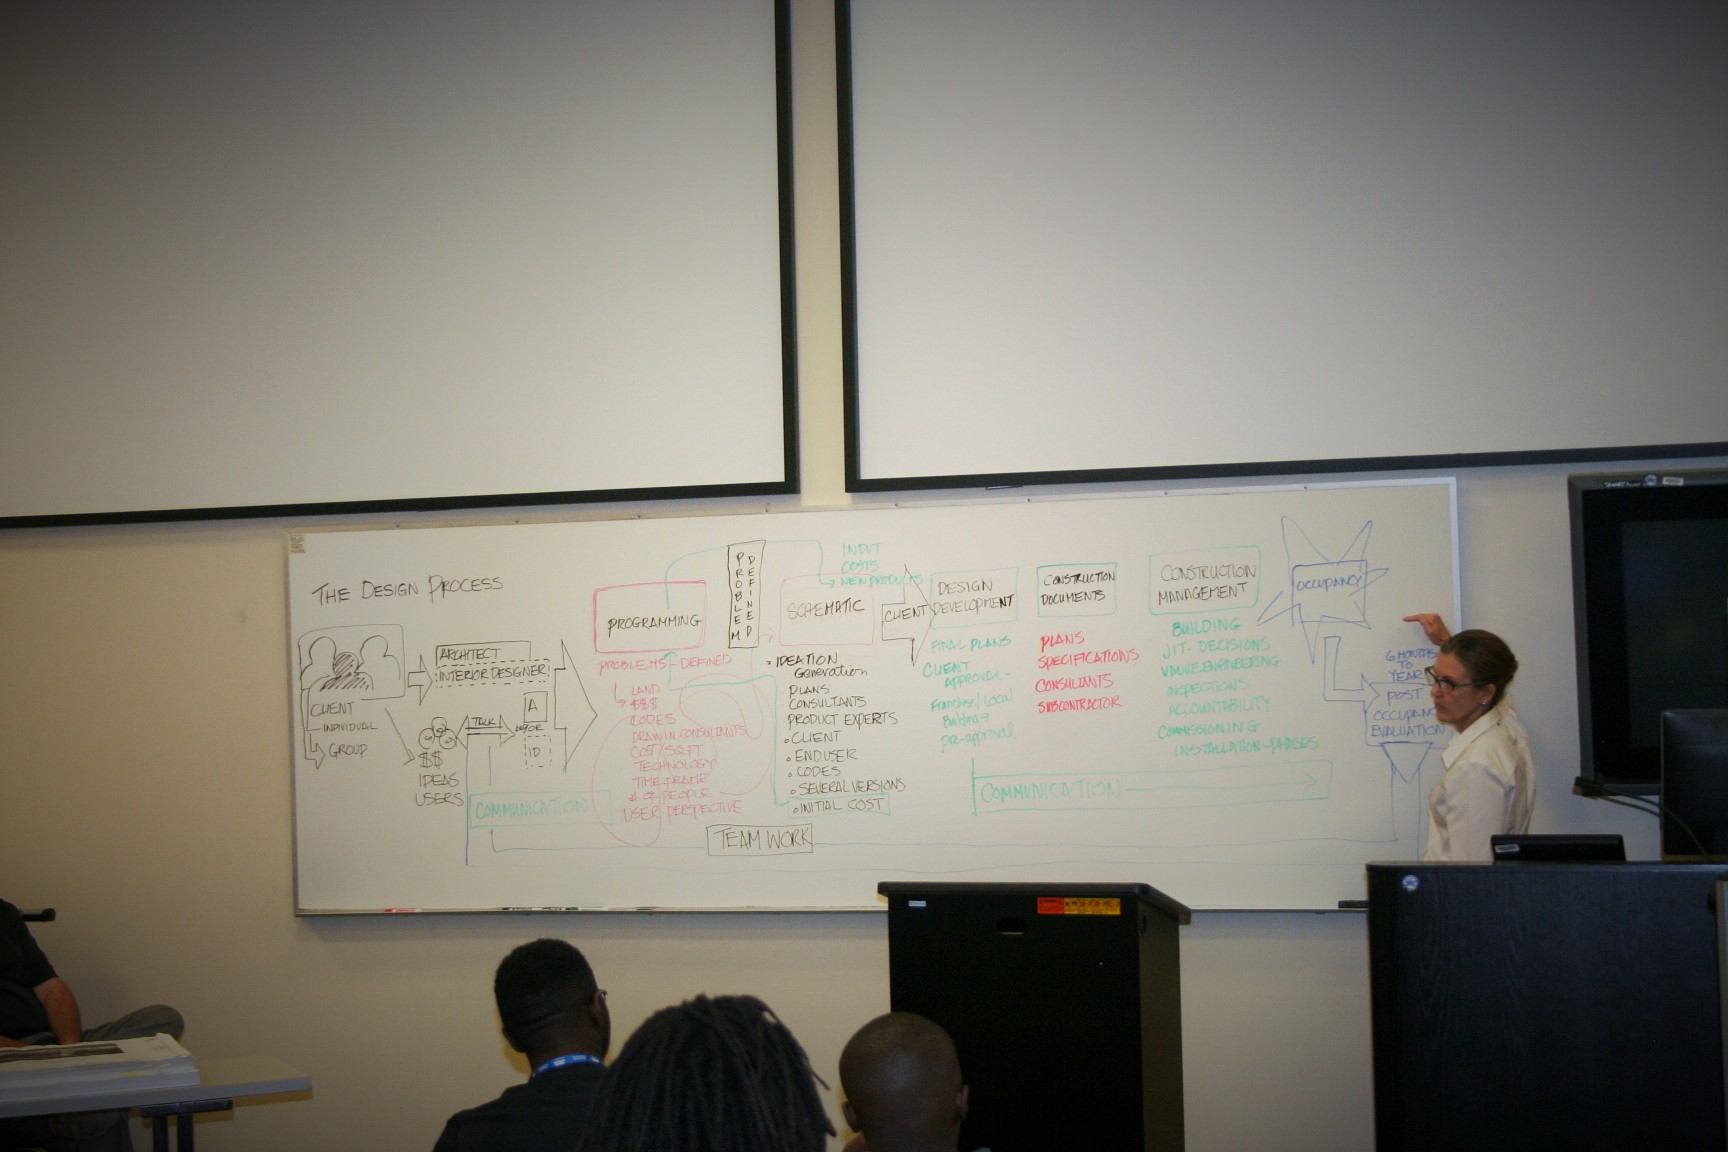 THE DESIGN PROCESS
CLIENT
INDIVIDUAL
GROUP
ARCHITECT
INTERIOR DESIGNER
TALK
$$
IDEAS
USERS
A
ID
COMMUNICATION
PROGRAMMING
PROBLEMS - DEFINED
LAND
$$$
CODES
DRAW IN CONSULTANTS
COST/SQ.FT
TECHNOLOGY
TIME FRAME
# OF PEOPLE
USER PERSPECTIVE
PROBLEM
DEFINED
TEAM WORK
INPUT
COSTS
NEW PRODUCTS
SCHEMATIC
IDEATION
Generation
PLANS
CONSULTANTS
PRODUCT EXPERTS
CLIENT
END USER
CODES
SEVERAL VERSIONS
INITIAL COST
CLIENT
DESIGN
DEVELOPMENT
FINAL PLANS
CLIENT
APPROVAL -
Franchise/Local
Building
pre-approval
CONSTRUCTION
DOCUMENTS
PLANS
SPECIFICATIONS
CONSULTANTS
SUBCONTRACTOR
CONSTRUCTION
MANAGEMENT
BUILDING
JIT - DECISIONS
VALUE ENGINEERING
INSPECTIONS
ACCOUNTABILITY
COMMISSIONING
INSTALLATION - PHASES
COMMUNICATION
OCCUPANCY
6 MONTHS
TO
YEAR
POST
OCCUPANCY
EVALUATION